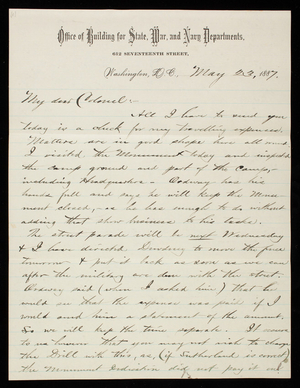 Office of Building for State, War, and Navy Departments.
612 SEVENTEENTH STREET,
Washington, D.C. May 23, 1887.
My dear Colonel:-
All I have to send you
today is a check for my travelling expenses.
Matters are in good shape here all around.
I visited the Monument today and inspected
the camp ground and part of the Camp,
including Headquarters - has his
hands full and says he will keep the Monu-
ment check, as he has enough to do without
adding that show business to his tasks.
The street parade will be not Wednesday
& I have directed to move the fence
tomorrow & put it back as soon as we can
after the military are done with the street.
said (when I asked him) that he
would see that the expense was paid if I
would send him a statement of the amount.
So we will keep the time separate. It occurs
to me however that you may not wish to charge
the Bill with this, as, (if Sutherland is correct)
the Monument Dedication did not pay it and